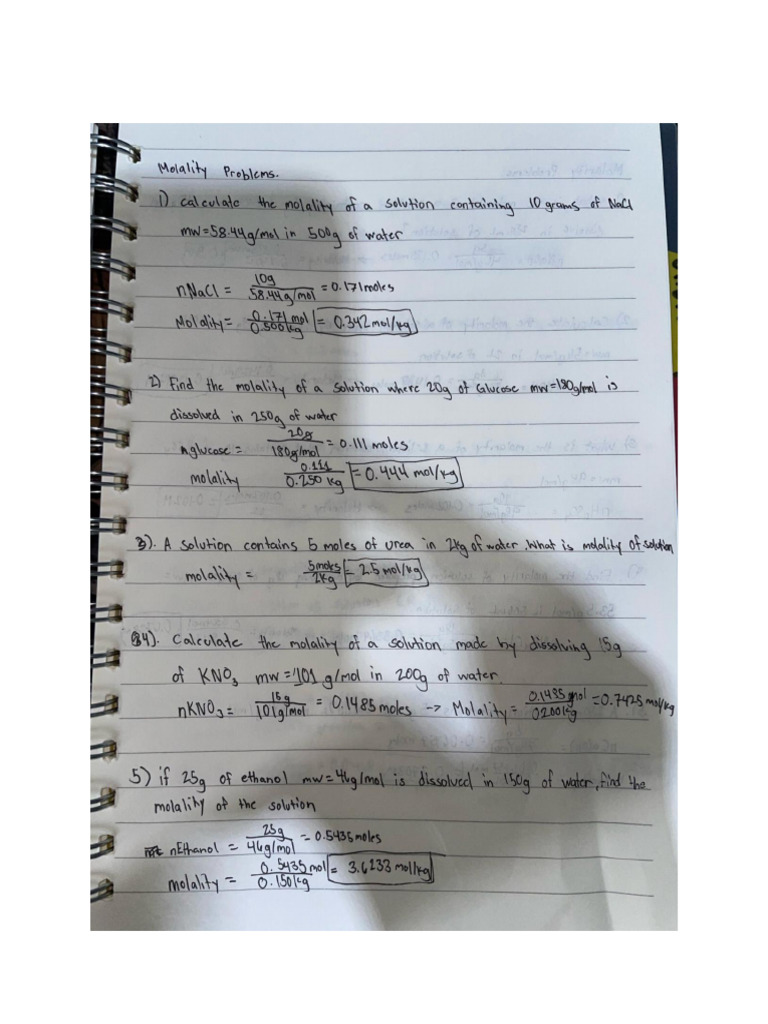 Molality Problems.
1) calculate the molality of a solution containing 10 grams of NaCl
mw=58.44g/mol in 500g of water
nNaCl = 10g / 58.44g/mol = 0.171moles
Molality= 0.171 mol / 0.500kg = 0.342 mol/kg
2) Find the molality of a solution where 20g of Glucose mw=180g/mol is
dissolved in 250g of water
nglucose = 20g / 180g/mol = 0.111 moles
molality 0.111 / 0.250 kg = 0.444 mol/kg
3). A solution contains 5 moles of urea in 2kg of water. What is molality of solution
molality = 5moles / 2kg = 2.5 mol/kg
4). Calculate the molality of a solution made by dissolving 15g
of KNO3 mw = 101 g/mol in 200g of water.
nKNO3 = 15g / 101g/mol = 0.1485 moles -> Molality = 0.1485 mol / 0.200kg = 0.7425 mol/kg
5) if 25g of ethanol mw=46g/mol is dissolved in 150g of water, find the
molality of the solution
nEthanol = 25g / 46g/mol = 0.5435 moles
molality = 0.5435 mol / 0.150kg = 3.6233 mol/kg